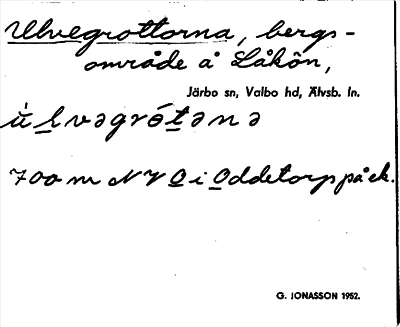 Ulvegrottorna, bergs-
område å Låkön,
Järbo sn, Valbo hd, Älvsb. ln.
ù l v ə g r ó t ə n ə
700 m N V O i Oddetorp på ek.
G. JONASSON 1952.